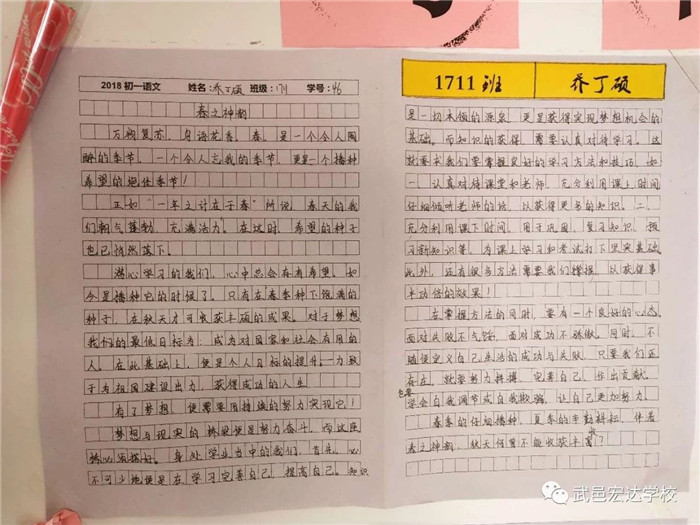 2018 初一语文 姓名:乔丁硕 班级:1711 学号:46
春之神韵
万物复苏,鸟语花香。春,是一个令人陶
醉的季节,一个令人忘我的季节,更是一个播种
希望的绝佳季节!
正如“一年之计在于春”所说,春天的我
们朝气蓬勃,充满活力。在这时,希望的种子
也已悄然落下。
潜心学习的我们,心中总会存有希望,如
今是播种它的时候了。只有在春季种下饱满的
种子,在秋天才可收获丰硕的成果。对于梦想
我们的最低目标为:成为对国家和社会有用的
人。在此基础上,便是个人目标的提升。一力致
于为祖国建设出力,获得成功的人生
有了梦想,便需要用持续的努力实现它!
梦想与现实的桥梁便是努力奋斗。而这座
桥必须搭好。身处学生当中的我们,首先,必
不可少地便是在学习完善自己,提高自己。知识
1711 班 乔丁硕
是一切本领的源泉,更是获得实现梦想机会的
基础。而知识的获得,需要认真对待学习。这
就要求我们要掌握良好的学习方法和技巧,如
一、认真对待课堂和老师,充分利用课上时间
仔细倾听老师的话,以获得更多的知识。二、
充分利用课下时间,用于巩固、复习知识、预
习新知识等,为课上学习和考试打下坚实基础。
此外,还有很多方法需要我们摸握,以获得事
半功倍的效果!
在掌握方法的同时,要有一个良好的心态
面对失败不气馁,面对成功不骄傲。同时,不
随便定义自己生活的成功与失败,只要我们还
存在,就要努力拼搏,完善自己,作出贡献。
也要学会自我调节或自我欺骗,让自己更加努力
春季的仔细播种,夏季的辛勤耕耘,伴着
春之神韵,秋天何愁不能收获丰收?
武邑宏达学校